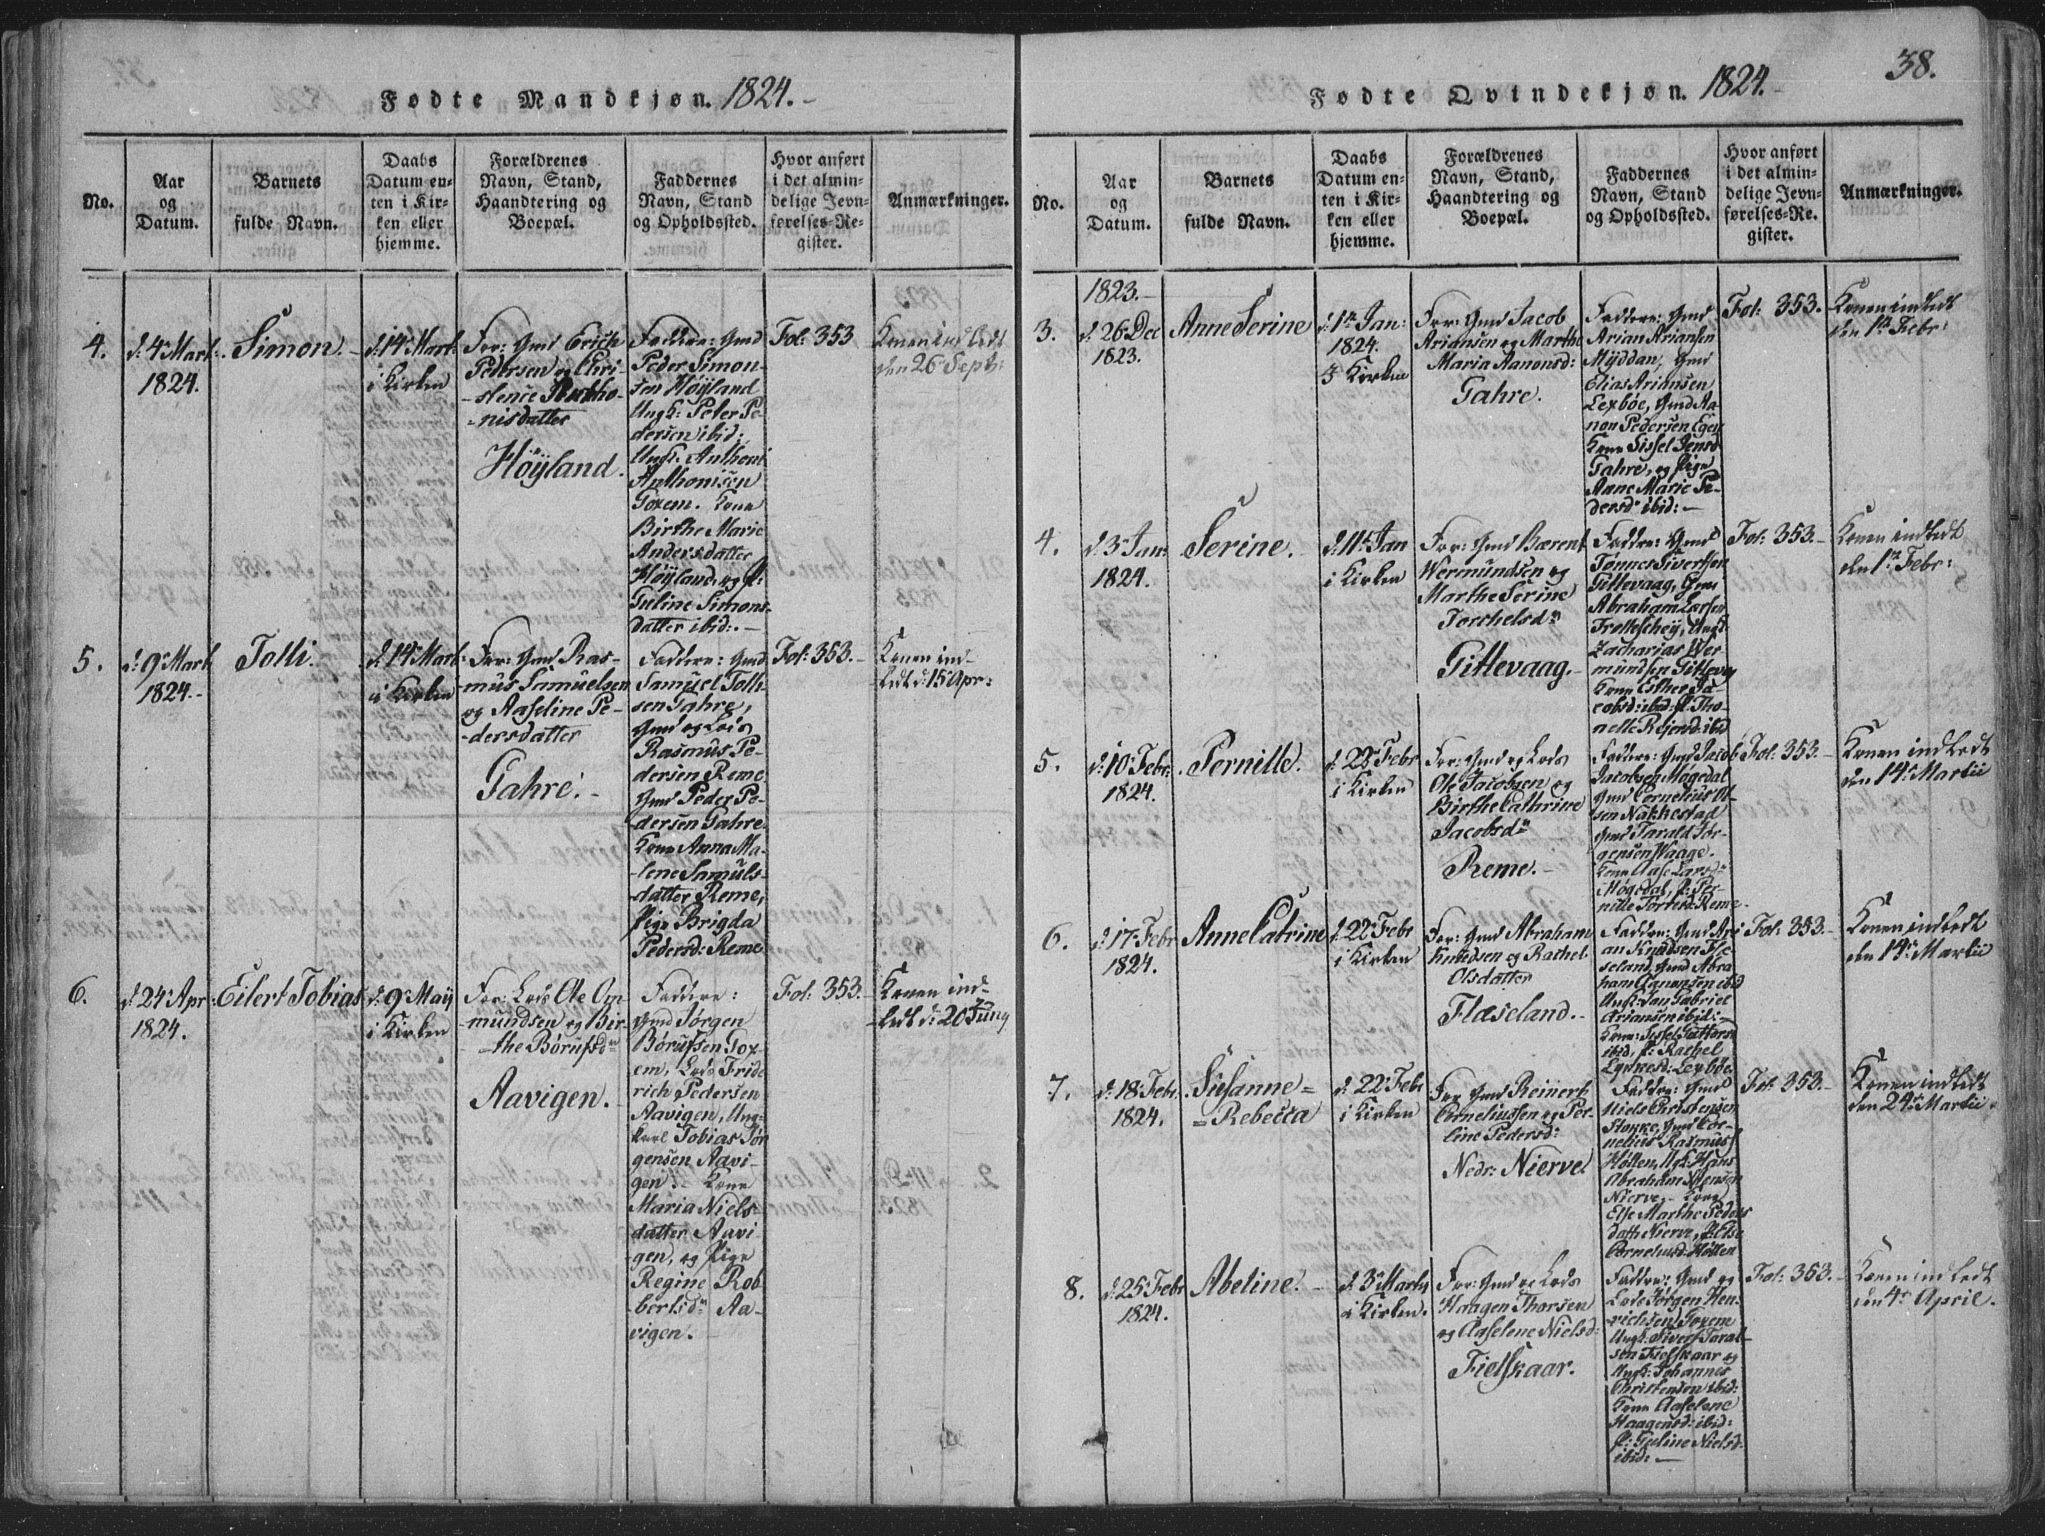 Fødte Mandkjøn. 1824.
No.
Aar
og
Datum.
Barnets
fulde Navn.
Daabs
Datum en-
ten i Kir-
ken eller
hjemme.
Forældrenes
Navn, Stand,
Haandtering og
Boepæl.
Faddernes
Navn, Stand
og Opholdssted.
Hvor anført
i det almin-
delige Jevn-
førelses-Re-
gister.
Anmærkninger.
4.
d: 4de Mart:
1824.
Simon.
d: 14de Mart:
i Kirken
For: Gmd Erich
Pedersen og Chri-
stence Antho-
nisdatter
Höÿland.
Faddre: Gmd
Peder Simon-
sen Höÿland
Ungk: Peter Pe-
dersen ibid:
Ungk: Anthoni
Anthonisen
Foxem. Kone
Birthe Marie
Andersdatter
Höÿland, og P:
Guline Simons-
datter ibid:
Fol: 353
Konen indledt
den 26 Sept:
5.
d: 9de Mart:
1824.
Tolli.
d: 14de Mart:
i Kirken
For: Gmd Ras-
mus Samuelsen
og Aaseline Pe-
dersdatter
Gahre.
Faddre: Gmd
Samuel Tolli-
sen Gahre,
Gmd og Lods
Rasmus Pe-
dersen Reme
Gmd Peder Pe-
dersen Gahre.
Kone Anna Ma-
lene Samuels-
datter Reme,
Pige Brigda
Pedersd: Reme
Fol: 353.
Konen ind-
ledt d: 15 Apr:
6.
d: 24 Apr:
1824.
Eilert Tobias
d: 9de Maÿ
i Kirken
For: Lods Ole Om-
mundsen og Bir-
the Börufsdr
Aavigen.
Faddre:
Gmd Jörgen
Börufsen Fox-
em, Lods Fride-
rich Pedersen
Aavigen, Ung-
karl Tobias Jör-
gensen Aavi-
gen. Kone
Maria Niels-
datter Aavi-
gen, og Pige
Regine Rob-
bertsdr Aa-
vigen.
Fol: 353.
Konen ind-
ledt d: 20 Juny
38.
Fødte Qvindekjøn. 1824.
No.
Aar
og
Datum.
Barnets
fulde Navn.
Daabs
Datum en-
ten i Kir-
ken eller
hjemme.
Forældrenes
Navn, Stand,
Haandtering og
Boepæl.
Faddernes
Navn, Stand
og Opholdssted.
Hvor anført
i det almin-
delige Jevn-
førelses-Re-
gister.
Anmærkninger.
3.
1823.
d: 26 Dec
1823.
Anne Serine
d: 1te Jan:
1824.
i Kirken
For: Gmd Jacob
Ariansen og Marthe
Maria Aanonsd:
Gahre.
Faddre: Gmd
Arian Ariansen
Mÿddan, Gmd
Elias Ariansen
Lexböe, Gmd Aa-
non Pedersen Egen
Kone Sissel Jensd:
Gahre, og Pige
Anne Marie Pe-
dersd: ibid:
Fol: 353.
Konen indledt
den 1te Febr:
4.
d. 3de Jan:
1824.
Serine.
d: 11te Jan
i Kirken
For: Gmd Bærent
Wermundsen og
Marthe Serine
Torchelsdr
Gittevaag.
Faddre: Gmd
Tönnes Sivertsen
Gittevaag, Gmd
Abraham Larsen
Zacharias Wer-
mundsen Gittevag
Kone Esther Ja-
cobsd: ibid: P: Tho-
Fol: 353.
Konen indledt
den 1te Febr:
5.
d: 10 Febr:
1824.
Pernille.
d: 22 Febr
i Kirken
For: Gmd og Lods
Ole Jacobsen og
Birthe Cathrine
Jacobsdr
Reme.
Faddre: Gmd Jacob
Jacobsen Mögedal
Gmd Cornelius Ol-
sen Nakkestad
Gmd Tarald Jör-
gensen Waage.
Kone Aase Larsd:
Mögedal, P: Per-
nille Torresd: Reme
Fol: 353.
Konen indledt
den 14de Martii
6.
d: 17 Febr
1824.
Anne Catrine
d: 22 Febr
i Kirken
For: Gmd Abraham
Knudsen og Rachel
Olsdatter
Flæseland.
Faddre: Gmd Ari-
an Knudsen Flæ-
seland, Gmd Abra-
ham Agnansen ibid
Ungk: Jan Gabriel
Ariansen ibid:
ibid, P: Rachel
Fol: 353.
Konen indledt
den 14de Martii
7.
d: 18 Febr:
1824.
Susanne=
=Rebecca
d: 22 Febr
i Kirken
For: Gmd Reinert
Corneliussen og Per-
line Pedersd:
Nedr: Nierve
Faddre: Gmd
Niels Christensen
Stokke, Gmd Cor-
nelius Rasmus:
Hölten, Ungk: Hans
Abraham Stensen
Nierve, Kone
Else Marthe Peders-
datter Nierve, P: Else
Corneliusd: Hölten
Fol: 353.
Konen indledt
den 24de Martii
8.
d: 25 Febr
1824.
Abeline.
d: 3de Martij
i Kirken.
For: Gmd og Lods
Haagen Thorsen
og Aaselene Nielsd:
Fielskaar.
Faddre: Gmd og
Lods Jörgen Hen-
richsen Foxem
Ungk: Sivert Taral-
sen Fielskaar og
Ungk: Johannes
Christensen ibid:
Kone Aaselene
Haagensd: ibid:
P: Guline Nielsd:
ibid:
Fol: 353.
Konen indledt
den 4de April.